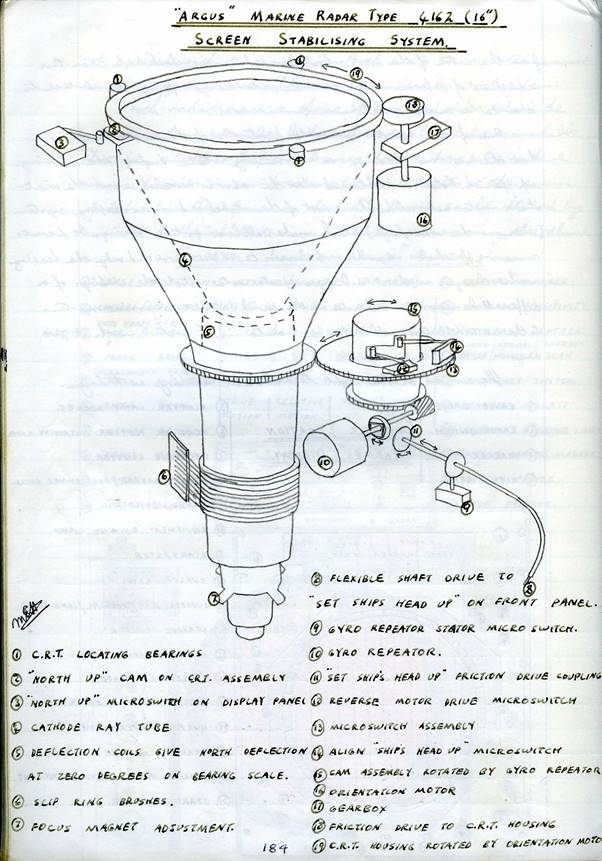 "ARGUS" MARINE RADAR TYPE 4162 (16")
SCREEN STABILISING SYSTEM.
①
①
⑲
③
②
①
⑱
⑰
⑯
④
⑤
⑮
⑭
⑫
⑬
⑥
⑩
⑪
⑨
⑧
⑦
① C.R.T. LOCATING BEARINGS
② "NORTH UP" CAM ON CRT. ASSEMBLY
③ "NORTH UP" MICROSWITH ON DISPLAY PANEL
④ CATHODE RAY TUBE
⑤ DEFLECTION COILS GIVE NORTH DEFLECTION
AT ZERO DEGREES ON BEARING SCALE.
⑥ SLIP RING BRUSHES.
⑦ FOCUS MAGNET ADJUSTMENT.
⑧ FLEXIBLE SHAFT DRIVE TO
"SET SHIPS HEAD UP" ON FRONT PANEL.
⑨ GYRO REPEATOR STATOR MICROSWITCH.
⑩ GYRO REPEATOR.
⑪ "SET SHIP'S HEAD UP" FRICTION DRIVE COUPLING
⑫ REVERSE MOTOR DRIVE MICROSWITCH
⑬ MICROSWITCH ASSEMBLY
⑭ ALIGN "SHIP'S HEAD UP" MICROSWITCH
⑮ CAM ASSEMBLY ROTATED BY GYRO REPEATOR
⑯ ORIENTATION MOTOR
⑰ GEARBOX
⑱ FRICTION DRIVE TO C.R.T. HOUSING
⑲ C.R.T. HOUSING ROTATED BY ORIENTATION MOTO
184